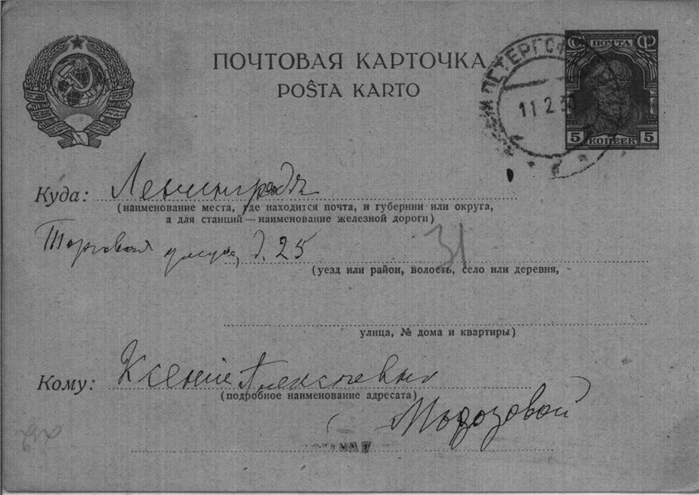 ПОЧТОВАЯ КАРТОЧКА
POŜTA KARTO
ПОЧТА
5 КОПЕЕК 5
ПЕТЕРГОФ
11 2 3
Куда: Ленинградъ
(наименование места, где находится почта, и губернии или округа,
а для станций—наименование железной дороги)
Торговая улица, д. 25
31
(уезд или район, волость, село или деревня,
улица, № дома и квартиры)
Кому: Ксение Алексеевне
(подробное наименование адресата)
Морозовой